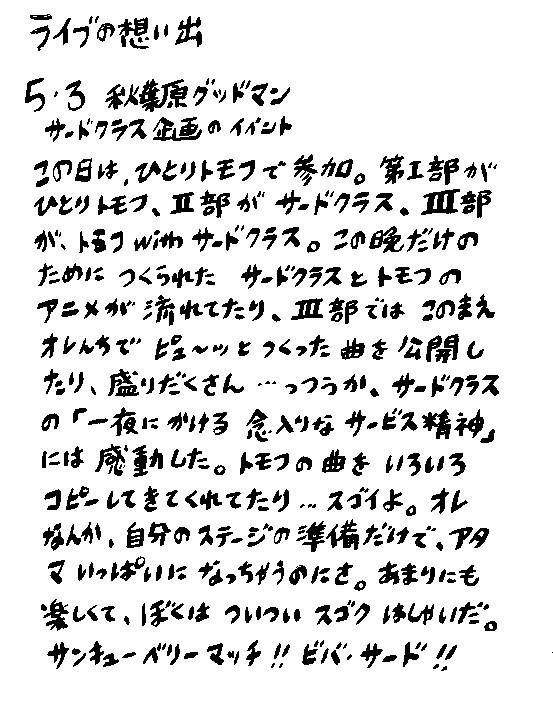 ライブの想い出
5・3 秋葉原グッドマン
サードクラス企画のイベント
この日は、ひとりトモフで参加。第Ⅰ部が
ひとりトモフ、Ⅱ部が サードクラス、Ⅲ部
が、トモフwithサードクラス。この晩だけの
ために つくられた サードクラスとトモフの
アニメが流れてたり、Ⅲ部では このまえ
オレんちで ピュ〜ッと つくった曲を公開し
たり、盛りだくさん…っつうか、サードクラス
の「一夜にかける 念入りな サービス精神」
には感動した。トモフの曲を いろいろ
コピーしてきてくれてたり…スゴイよ。オレ
なんか、自分のステージの準備だけで、アタ
マ いっぱいに なっちゃうのにさ。あまりにも
楽しくて、ぼくは ついつい スゴク はしゃいだ。
サンキューベリーマッチ!! ビバ・サード!!